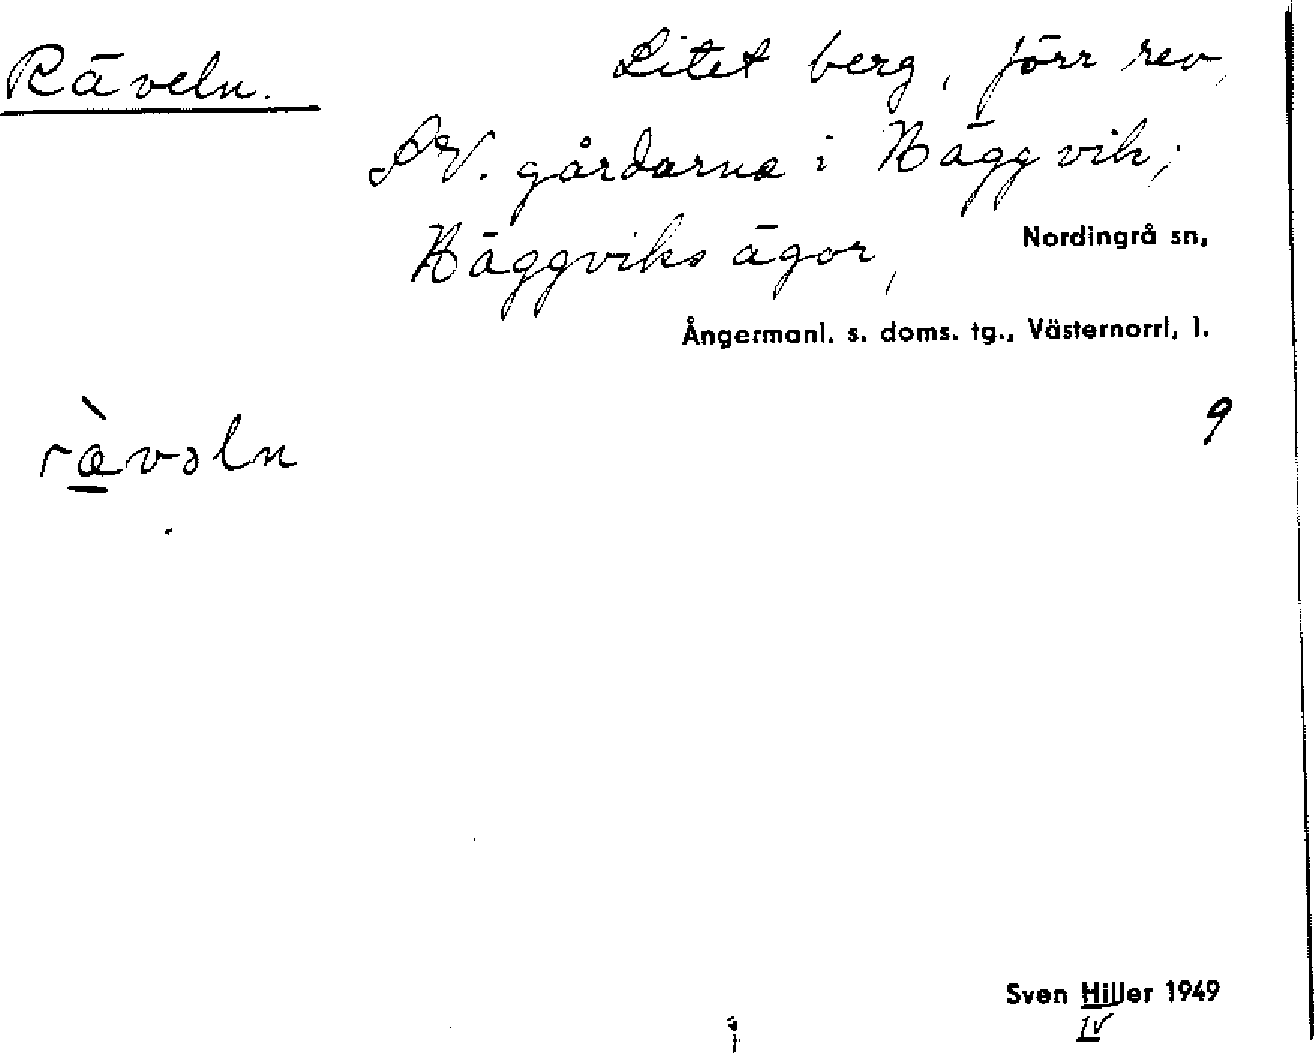 Räveln.
Litet berg, förr rev,
SV. gårdarna i Häggvik;
Häggviks ägor,
Nordingrå sn,
Ångermanl. s. doms. tg., Västernorrl. l.
9
rævəln
Sven Hiller 1949
IV